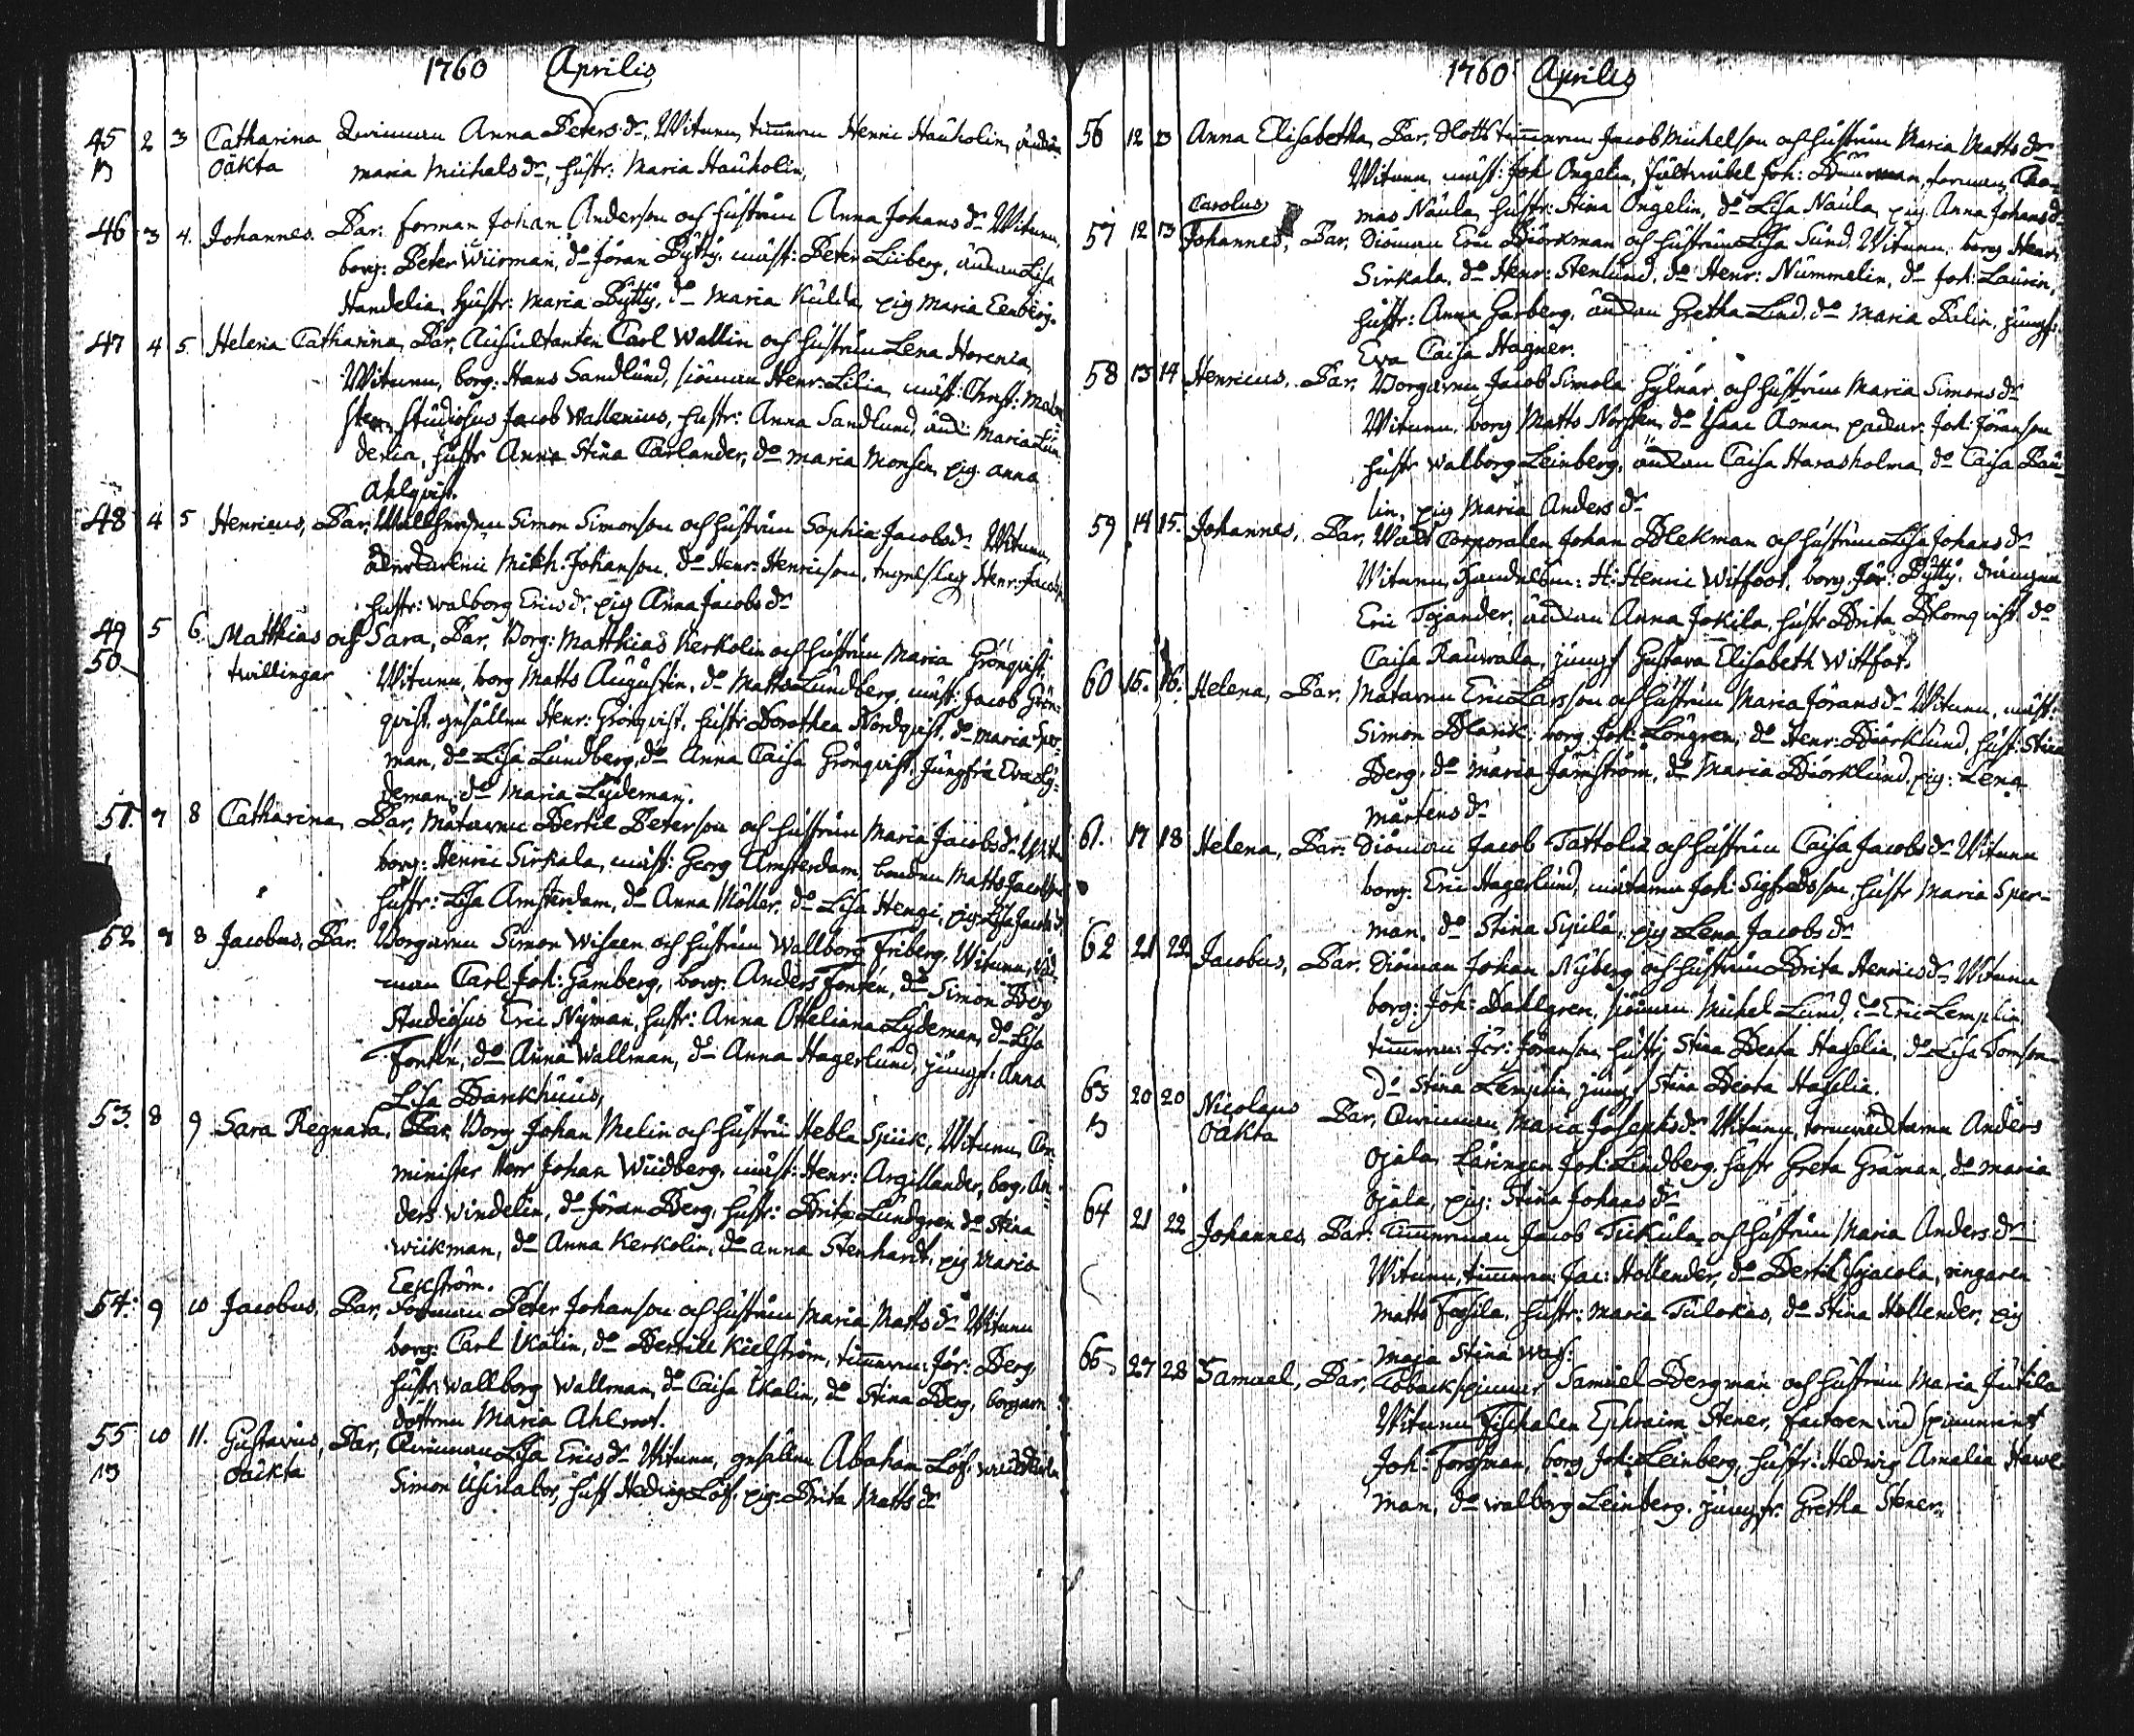 1760 Aprilis
45 2 3 Catharina Qwinnan Anna Peters dr, Witnen, timmerm Henric Hauholin,
n oäkta maria Michals dr, hustr: Maria Hauholin,
46 3 4. Johannes. Par: forman Johan Anderson och hustrun Anna Johans dr Witnen,
borg: Peter Wiirman, do Jöran Pÿttÿ, mäst: Peter Liiberg, änkan Lisa
Handelia, hustr: Maria Pÿttÿ, do Maria Kulda, pig Maria Eenberg.
47 4 5. Helena Catharina, Par, Auscultanten Carl Wallin och hustrun Lena Horenia,
Witnen, borg: Hans Sandlund, siöman Henr: Lilia, mäst: Christ:
sten, studiosus Jacob Wallenius, hustr: Anna Sandlund, änk: Maria Lun-
delia, hustr Anna Stina Carlander, do maria Monsen, pig anna
Ahlqvist.
48 4 5 Henricus, Par, Simon Simonson och hustrun Sophia Jacobs dr Witnen,
Mikh: Johanson, do Henr: Henricson, Henr: Jacobs
hustr: walborg Erics dr, pig Anna Jacobs dr
49 5 6. Matthias och Sara, Par, Borg: Matthias Kerkolin och hustrun Maria Grönqvist,
50 twillingar Witnen, borg Matts Augustin, do Matts Lundberg, mäst: Jacob Grön-
qvist, gesällen Henr: Grönqvist, hustr Dorothea Nordqvist, do maria Sper-
man, do Lisa Lundberg, do Anna Caisa Grönqvist, Jungfru Eva Ly-
deman, do Maria Lydeman.
51. 7 8 Catharina, Par, Mätaren Bertil Peterson och hustrun Maria Jacobs dr Witn
borg: Henric Sirkala, mäst: Georg Amsterdam, bonden Matts Jacobson
hustr: Lisa Amsterdam, do Anna Möller, do Lisa Hengi, pig Lisa Jacobs d
52 7 8 Jacobus, Par. Borgaren Simon Wiseen och hustrun Wallborg Friberg, Witnen,
man Carl Joh: Gamberg, borg: Anders Fontén, do Simon Berg
Studiosus Eric Nyman, hustr: Anna Otteliana Lydeman, do Lisa
Fontén, do Anna Wallman, do Anna Hagerlund, jungf: Anna
Lisa Bankhuus,
53. 8 9 Sara Regnata, Par, Borg Johan Melin och hustru Hebla Spiik, Witnen, Com-
minister Herr Johan Wiidberg, mäst: Henr: Argillander, borg: An-
ders Windelin, do Jöran Berg, hustr: Brita Lundgren do Stina
wiikman, do Anna Kerkolin, do anna Stenhardt, pig Maria
Eekström.
54. 9 10 Jacobus, Par, Forman Peter Johanson och hustrun Maria Matts dr Witnen
borg: Carl Ikalin, do Bertill Kielström, timmerm: Jör: Berg
hustr wallborg Wallman, do Caisa Ikalin, do Stina Berg, borgare
dottren Maria Ahlroot.
55 10 11. Gustavus, Par, Qwinnan Lisa Erics dr Witnen, gesällen Abaham Löf,
n oäkta Simon Usirlabor, hust Hedvig Löf, pig Brita Matts dr
1760 Aprilis
56 12 13 Anna Elisabetha, Par, Slotts timmerm Jacob Michelson och hustrun Maria Matts dr
Witnen, mäst: Joh Ongelin, fältwäbel Joh: forman, Tho-
mas Naula, hustr: Stina Ongelin, do Lisa Naula, pig Anna Johans dr
Carolus
57 12 13 Johannes, Par, Siöman Eric Biörkman och hustrun Lisa Sund, Witnen, borg Henr:
Sirkala, do Henr: Stenlund, do Henr: Nummelin, do Joh: Laurin,
hustr: Anna Garberg, änkan Gretha Lind, do Maria Palin, jungf:
Eva Caisa Hagner.
58 13 14 Henricus, Par, Borgaren Jacob Simola och hustrun Maria Simons dr
Witnen, borg Matts Norsten, do Isaac Asman, packar: Joh: Jöranson
hustr walborg Leinberg, änkan Caisa Harasholma, do Caisa Pau-
lin, pig Maria Anders dr
59 14 15. Johannes, Par, Corporalen Johan Blekman och hustrun Lisa Johans dr
Witnen, Handelsm: H: Henric Witfoot, borg: Jör: Pÿttÿ, drängen
Eric Tojander, änkan Anna Jokila, hustr Brita Blomqvist, do
Caisa Rauvala, jungf Gustava Elisabeth Wittfot.
60 15. 16. Helena, Par, Mätaren Eric Larsson och hustrun Maria Jörans dr Witnen, mäst:
Simon Blank, borg Joh: Löngren, do Henr: Biörklund, hust: Stina
Berg, do Maria Jämström, do Maria Biörklund, pig: Lena
Mårtens dr
61. 17 18 Helena, Par: Siöman Jacob Tattolia och hustrun Caisa Jacobs dr Witnen
borg: Eric Hagerlund, mätaren Joh Sigfredsson, hustr Maria Sper-
man, do Stina Sipilä, pig Lena Jacobs dr
62 21 22 Jacobus, Par. Siöman Johan Nyberg och hustrun Brita Henrics dr Witnen
borg: Joh: Dahlgren, siöman Michel Lund, do Eric Lemplin
timmerm: Jör: Jöranson, hustr Stina Beata Haselia, do Lisa Tomson
do Stina Lemplin, jungf Stina Beata Haselia.
63 20 20 Nicolaus Par, Qwinnan, Maria Josephs dr Witnen, Anders
n oäkta Ojala, Läringen Joh: Lindberg, hustr Greta Gråman, do maria
Ojala, pig: Stina Johans dr
64 21 22 Johannes Par: Timmerman Jacob Tukula och hustrun Maria Anders dr
Witnen, timmerm: Jac: Hollender, do Bertil Sojacola, ringaren
Matts Fossila, hustr: Maria Tulokas, do Stina Hollender, pig
Maja Stina was:
65 27 28 Samuel, Par, Tobackspinnar Samuel Bergman och hustrun Maria Jutila
Witnen Fischalen Ephraim Stener, factoren wid spinneriet
Joh: Forssman, borg Joh: Leinberg, hustr: Hedwig Amalia Hawe-
man, do walborg Leinberg, jungfr: Gretha Stener.